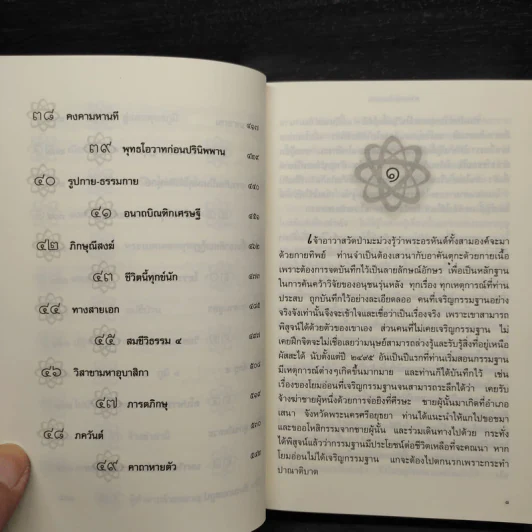 ๓๘ คงคามหานที
๓๙ พุทธโอวาทก่อนปรินิพพาน
๔๐ รูปกาย-ธรรมกาย
๔๑ อนาถบิณฑิกเศรษฐี
๔๒ ภิกษุณีสงฆ์
๔๓ ชีวิตนี้ทุกข์นัก
๔๔ ทางสายเอก
๔๕ สมชีวิธรรม ๔
๔๖ วิสาขามหาอุบาสิกา
๔๗ ภารตภิกษุ
๔๘ ภควันต์
๔๙ คาถาหายตัว
๑
เจ้าอาวาสวัดป่ามะม่วงรู้ว่าพระอรหันต์ทั้งสามองค์จะมา
ด้วยกายทิพย์ ท่านจำเป็นต้องเสวนากับอาคันตุกะด้วยกายเนื้อ
เพราะต้องการจดบันทึกไว้เป็นลายลักษณ์อักษร เพื่อเป็นหลักฐาน
ในการค้นคว้าวิจัยของอนุชนรุ่นหลัง ทุกเรื่อง ทุกเหตุการณ์ที่ท่าน
ประสบ ถูกบันทึกไว้อย่างละเอียดลออ คนที่เจริญกรรมฐานอย่าง
จริงจังเท่านั้นจึงจะเข้าใจและเชื่อว่าเป็นเรื่องจริง เพราะเขาสามารถ
พิสูจน์ได้ด้วยตัวของเขาเอง ส่วนคนที่ไม่เคยเจริญกรรมฐาน ไม่
เคยฝึกจิตจะไม่เชื่อเลยว่ามนุษย์สามารถล่วงรู้และรับรู้สิ่งที่อยู่เหนือ
ผัสสะได้ นับตั้งแต่ปี ๒๔๙๕ อันเป็นปีแรกที่ท่านเริ่มสอนกรรมฐาน
มีเหตุการณ์ต่างๆเกิดขึ้นมากมาย และท่านก็ได้บันทึกไว้ เช่น
เรื่องของโยมอ่อนที่เจริญกรรมฐานจนสามารถระลึกได้ว่า เคยรับ
จ้างฆ่าชายผู้หนึ่งด้วยการจ่อยิงที่ศีรษะ ชายผู้นั้นมาเกิดที่อำเภอ
เสนา จังหวัดพระนครศรีอยุธยา ท่านได้แนะนำให้แกไปขอขมา
และขออโหสิกรรมจากชายผู้นั้น และร่วมเดินทางไปด้วย กระทั่ง
ได้พิสูจน์แล้วว่ากรรมฐานมีประโยชน์ต่อชีวิตเหลือที่จะคณนา หาก
โยมอ่อนไม่ได้เจริญกรรมฐาน แกจะต้องไปตกนรกเพราะกระทำ
ปาณาติบาต